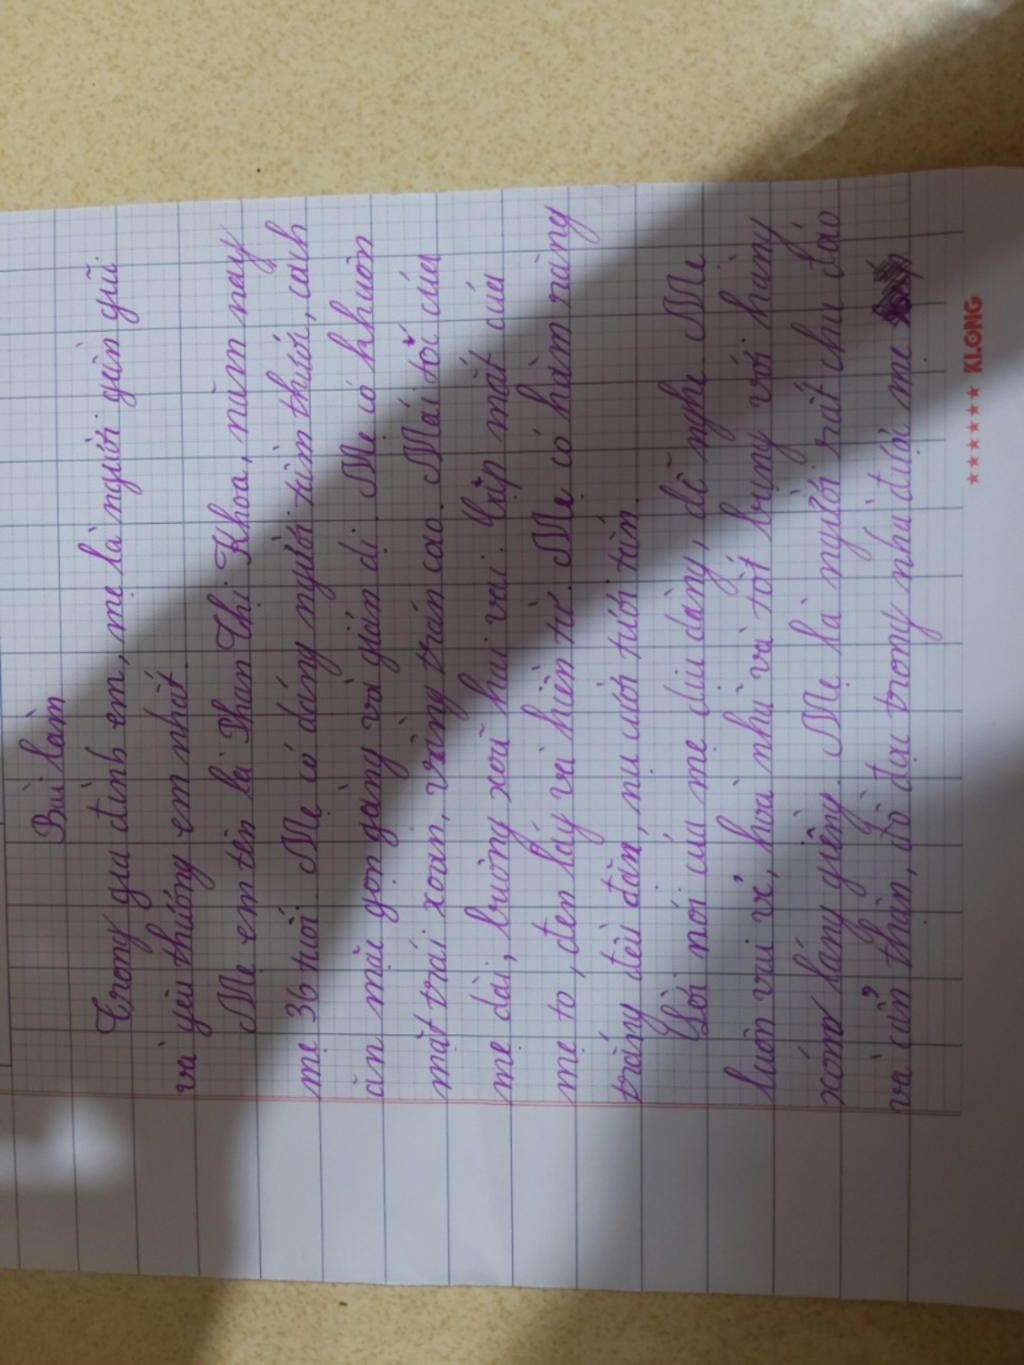 Bài làm
Trong gia đình em, mẹ là người gần gũi
và yêu thương em nhất.
Mẹ em tên là Phan Thị Khoa, năm nay
mẹ 36 tuổi. Mẹ có dáng người tầm thước, cách
ăn mặc gọn gàng và giản dị. Mẹ có khuôn
mặt trái xoan, vầng trán cao. Mái tóc của
mẹ dài, buông xoã hai vai. Cặp mắt của
mẹ to, đen láy và hiền từ. Mẹ có hàm răng
trắng đều đặn, nụ cười tươi tắn.
Lời nói của mẹ dịu dàng, dễ nghe. Mẹ
luôn vui vẻ, hoà nhã và tốt bụng với hàng
xóm láng giềng. Mẹ là người rất chu đáo
và cẩn thận, đồ đạc trong nhà được mẹ
KLONG